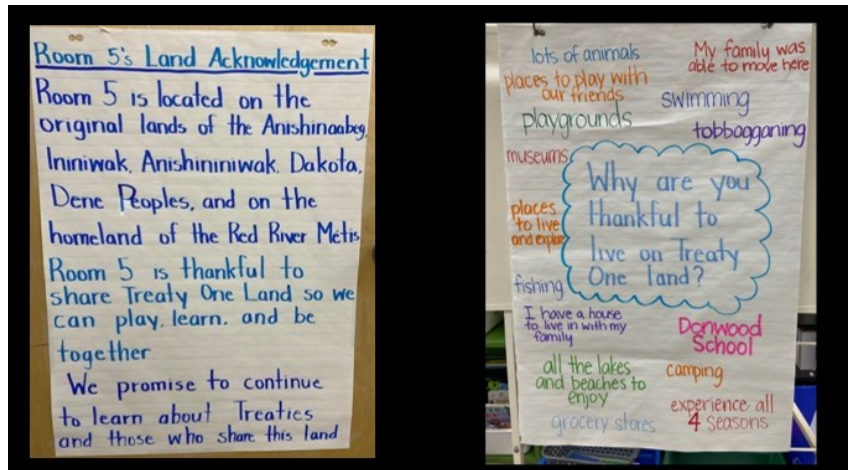 Room 5's Land Acknowledgement
Room 5 is located on the
original lands of the Anishinaabeg,
Ininiwak, Anishininiwak, Dakota,
Dene Peoples, and on the
homeland of the Red River Métis
Room 5 is thankful to
share Treaty One Land so we
can play, learn, and be
together
We promise to continue
to learn about Treaties
and those who share this land
lots of animals
My family was
able to move here
places to play with
our friends
swimming
playgrounds
tobbogganing
museums
Why are you
thankful to
live on Treaty
One land?
places
to live
and explore
fishing
I have a house
to live in with my
family
Donwood
School
all the lakes
and beaches to
enjoy
camping
experience all
4 seasons
grocery stores